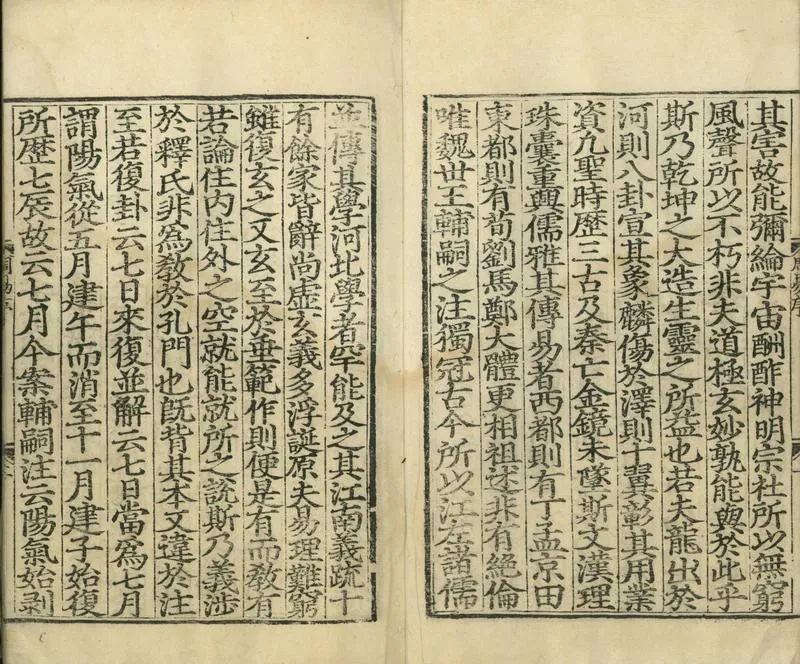 其宇故能彌綸宇宙酬酢神明宗社所以無窮
風聲所以不朽非夫道極玄妙孰能與於此乎
斯乃乾坤之大造生靈之所益也若夫龍出於
河則八卦宣其象麟傷於澤則十翼彰其用業
資九聖時歷三古及秦亡金鏡未墜斯文漢理
珠囊重興儒雅其傳易者西都則有丁孟京田
東都則有荀劉馬鄭大體更相祖述非有絕倫
唯魏世王輔嗣之注獨冠古今所以江左諸儒
並傳其學河北學者罕能及之其江南義疏十
有餘家皆辭尚虛玄義多浮誕原夫易理難窮
雖復玄之又玄至於垂範作則便是有而教有
若論住內住外之空就能就所之說斯乃義涉
於釋氏非為教於孔門也既背其本又違於注
至若復卦云七日來復並解云七日當為七月
謂陽氣從五月建午而消至十一月建子始復
所歷七辰故云七月今案輔嗣注云陽氣始剥